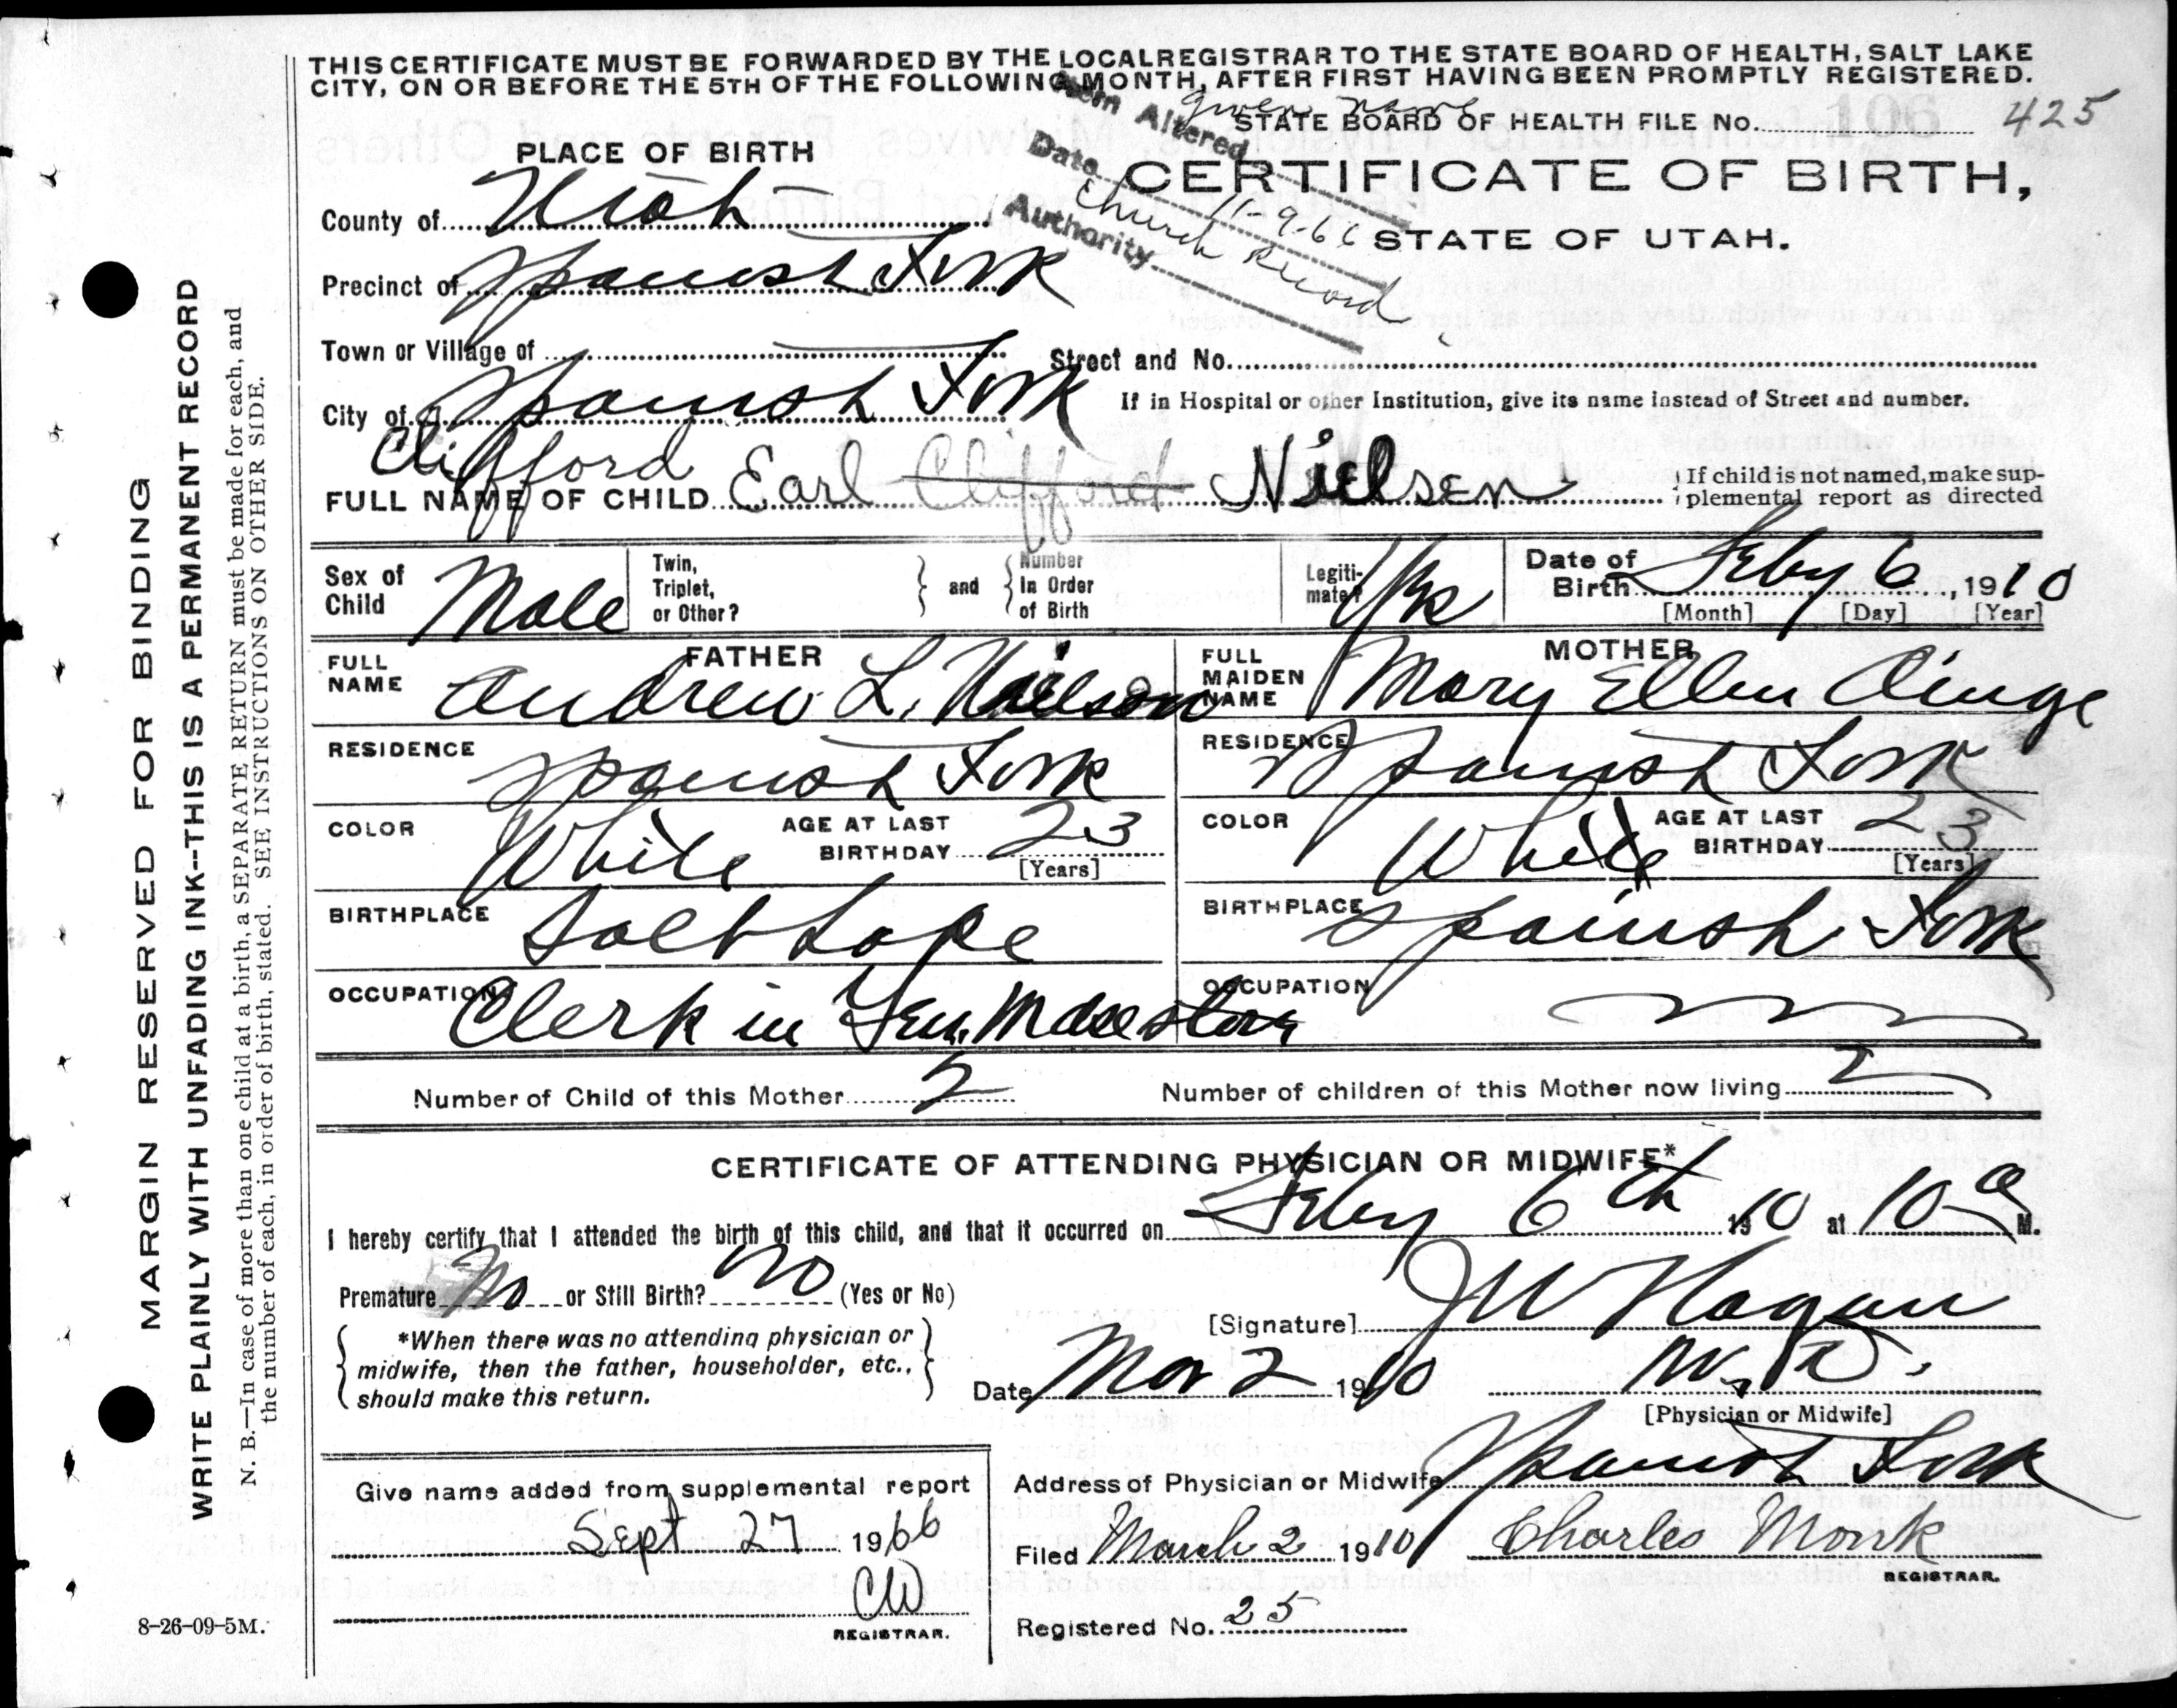 THIS CERTIFICATE MUST BE FORWARDED BY THE LOCAL REGISTRAR TO THE STATE BOARD OF HEALTH, SALT LAKE
CITY, ON OR BEFORE THE 5TH OF THE FOLLOWING MONTH, AFTER FIRST HAVING BEEN PROMPTLY REGISTERED.
given name
Altered
STATE BOARD OF HEALTH FILE No. 106 425
Date 11-9-66
Authority Church Record
PLACE OF BIRTH
CERTIFICATE OF BIRTH,
STATE OF UTAH.
County of Utah
Precinct of Spanish Fork
Town or Village of
Street and No.
City of Spanish Fork
If in Hospital or other Institution, give its name instead of Street and number.
Clifford
FULL NAME OF CHILD Earl Clifford Nielsen
If child is not named, make sup-
plemental report as directed
Sex of Child Male
Twin, Triplet, or Other?
and
Number in Order of Birth
Legiti-mate? Yes
Date of Birth Feby 6, 1910
[Month] [Day] [Year]
FATHER
FULL NAME Andrew L. Nielsen
RESIDENCE Spanish Fork
COLOR White
AGE AT LAST BIRTHDAY 23
[Years]
BIRTHPLACE Salt Lake
OCCUPATION Clerk in Gen. Mdse store
MOTHER
FULL MAIDEN NAME Mary Ellen
RESIDENCE Spanish Fork
COLOR White
AGE AT LAST BIRTHDAY 23
[Years]
BIRTHPLACE Spanish Fork
OCCUPATION
Number of Child of this Mother 2
Number of children of this Mother now living 2
CERTIFICATE OF ATTENDING PHYSICIAN OR MIDWIFE*
I hereby certify that I attended the birth of this child, and that it occurred on Feby 6th 1910 at 10 a M.
Premature No or Still Birth? No (Yes or No)
[Signature] J W Hagan
*When there was no attending physician or
midwife, then the father, householder, etc.,
should make this return.
Date Mar 2 1910 M. D.
[Physician or Midwife]
Address of Physician or Midwife Spanish Fork
Give name added from supplemental report
Sept 27 1966
CW
REGISTRAR.
Filed March 2 1910 Charles Monk
REGISTRAR.
Registered No. 25
8-26-09-5M.
MARGIN RESERVED FOR BINDING
WRITE PLAINLY WITH UNFADING INK--THIS IS A PERMANENT RECORD
N. B.—In case of more than one child at a birth, a SEPARATE RETURN must be made for each, and
the number of each, in order of birth, stated. SEE INSTRUCTIONS ON OTHER SIDE.